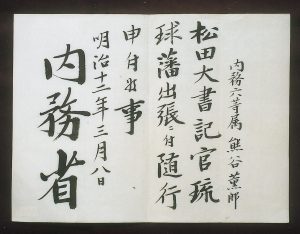 内務六等属 熊谷薫郎
松田大書記官琉
球藩出張ニ付随行
申付候事
明治十二年三月八日
内務省